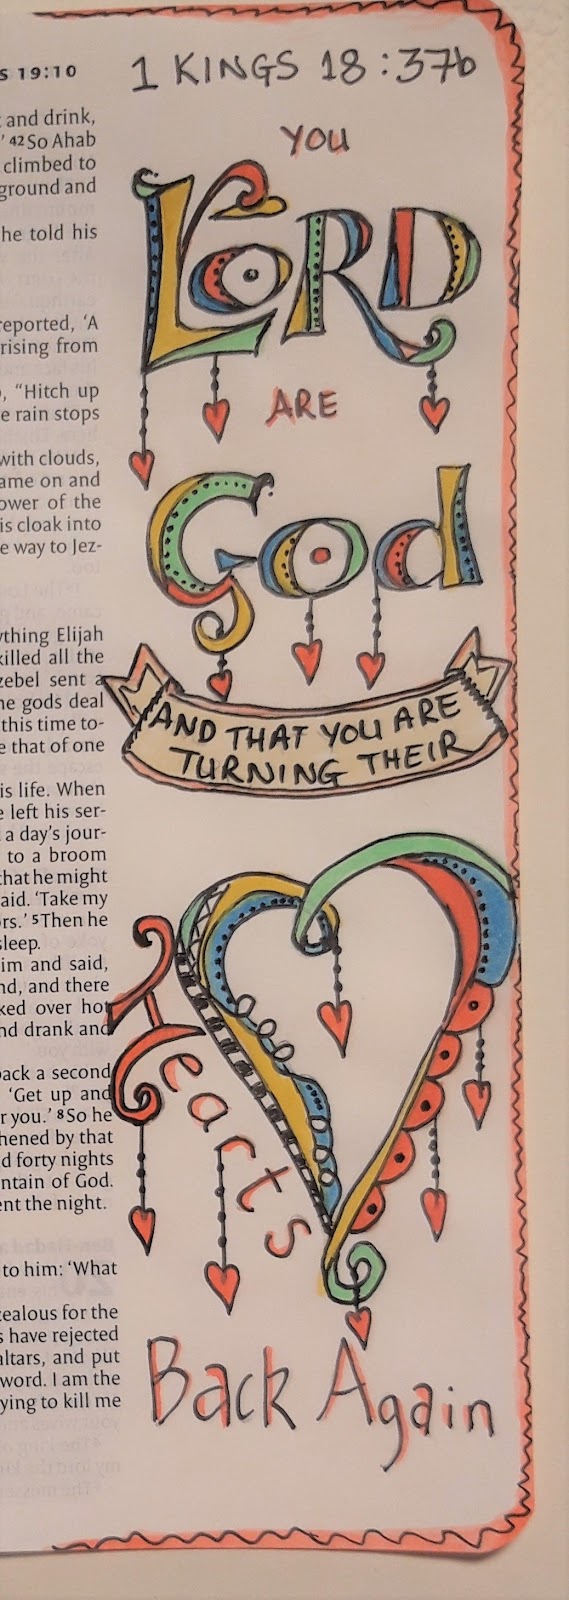 S 19:10
and drink,
' 42 So Ahab
climbed to
ground and
he told his
reported, 'A
rising from
, "Hitch up
e rain stops
with clouds,
ame on and
ower of the
is cloak into
e way to Jez-
ything Elijah
killed all the
zebel sent a
he gods deal
this time to-
e that of one
is life. When
e left his ser-
a day's jour-
to a broom
that he might
said. 'Take my
ors.' 5 Then he
sleep.
im and said,
nd, and there
ked over hot
nd drank and
back a second
'Get up and
r you.' 8 So he
thened by that
d forty nights
ntain of God.
ent the night.
to him: 'What
zealous for the
s have rejected
altars, and put
word. I am the
ying to kill me
1 KINGS 18:37b
YOU
LORD
ARE
God
AND THAT YOU ARE
TURNING THEIR
Hearts
Back Again